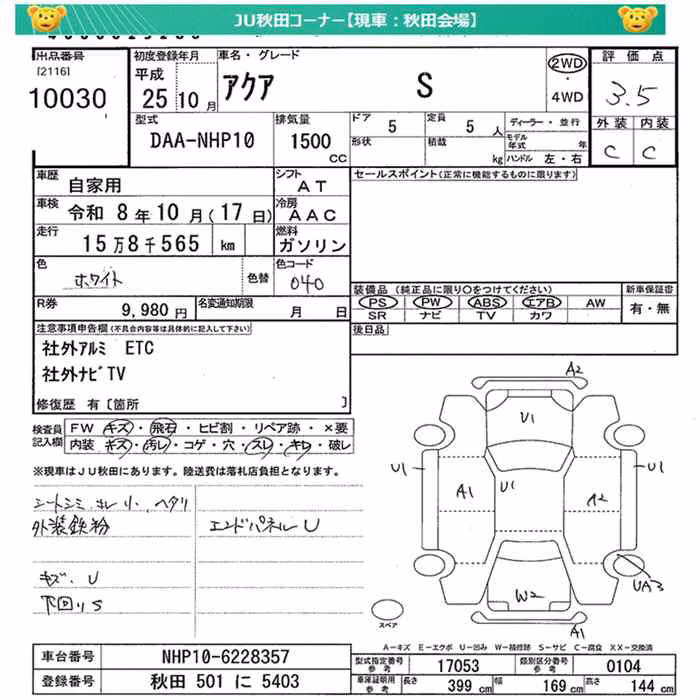 JU秋田コーナー【現車：秋田会場】
出品番号
[2116]
10030
初度登録年月
平成
25年10月
車名・グレード
アクア S
2WD
4WD
評価点
3.5
外装 内装
C C
型式
DAA-NHP10
排気量
1500
CC
ドア 5
定員 5 人
形状
積載 kg
ディーラー・並行
モデル年式 年
ハンドル 左・右
車歴 自家用
シフト AT
車検 令和 8年10月(17日)
冷房 AAC
走行 15万8千565 km
燃料 ガソリン
色 ホワイト
色替
色コード 040
R券 9,980円
名変通知期限 月 日
セールスポイント(正常に機能するものに限ります)
装備品 (純正品に限り○をつけてください)
PS PW ABS エアB AW
SR ナビ TV カワ
新車保証書
有・無
後日品
注意事項申告欄(不具合内容等は具体的に記入して下さい)
社外アルミ ETC
社外ナビTV
修復歴 有[箇所 ]
検査員記入欄
FW キズ・飛石・ヒビ割・リペア跡・×要
内装 キズ・汚レ・コゲ・穴・スレ・キレ・破レ
※現車はJU秋田にあります。陸送費は落札店負担となります。
シートシミ、キレ小、ヘタリ
外装鉄粉
エンドパネルU
キズ、U
下回りS
A2
U1
U1
U1
A1
U1
A2
W2
UA3
A1
スペア
A－キズ E－エクボ U－凹み W－補修跡 S－サビ C－腐食 XX－交換済
車台番号 NHP10-6228357
登録番号 秋田 501 に 5403
型式指定番号 参考 17053
類別区分番号 参考 0104
車庫証明用 参考 長さ 399 cm 幅 169 cm 高さ 144 cm